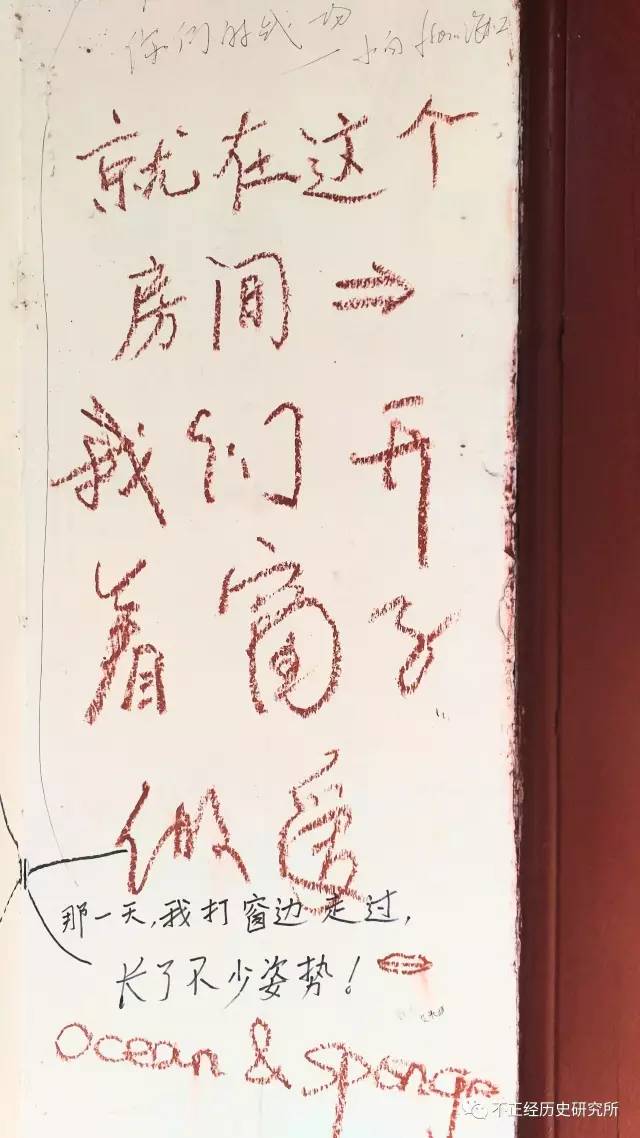 你们的战场
就在这个
房间⇒
我们开
着窗子
做爱
那一天,我打窗边走过,
长了不少姿势!
Ocean & sponge
不正经历史研究所